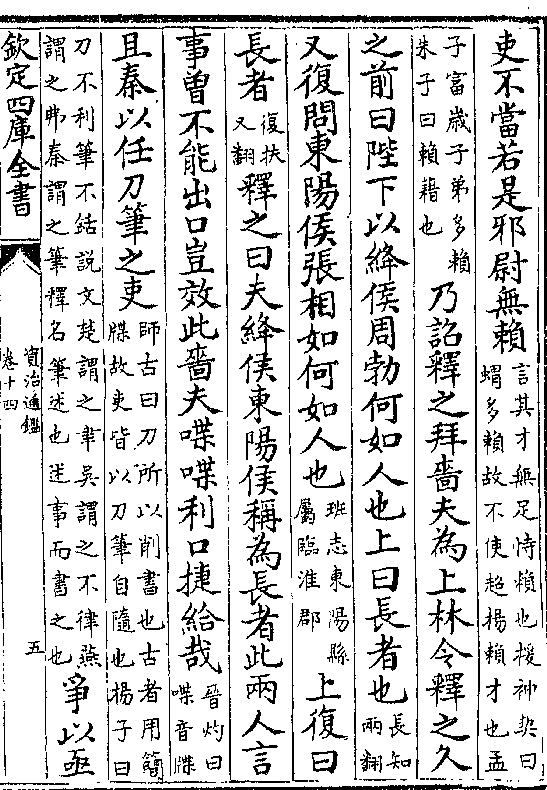 吏不當若是邪尉無賴言其才無足恃賴也援神契曰蝟多賴故不使超揚賴才也孟
子富歲子弟多賴朱子曰賴藉也乃詔釋之拜嗇夫為上林令釋之久
之前曰陛下以絳侯周勃何如人也上曰長者也長知兩翻
又復問東陽侯張相如何如人也班志東陽縣屬臨淮郡上復曰
長者復扶又翻釋之曰夫絳侯東陽侯稱為長者此兩人言
事曾不能出口豈效此嗇夫喋喋利口捷給哉晉灼曰喋音牒
且秦以任刀筆之吏師古曰刀所以削書也古者用簡牒故吏皆以刀筆自隨也楊子曰
刀不利筆不銛説文楚謂之聿吳謂之不律燕謂之弗秦謂之筆釋名筆述也述事而書之也爭以亟
欽定四庫全書
資治通鑑
卷十四
五